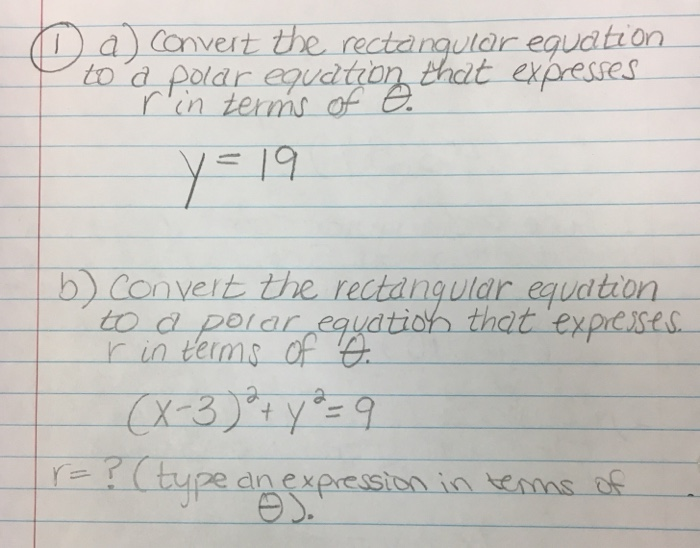 ① a) Convert the rectangular equation
to a polar equation that expresses
r in terms of θ.
y = 19
b) Convert the rectangular equation
to a polar equation that expresses.
r in terms of θ.
(x-3)² + y² = 9
r = ? (type an expression in terms of
θ).